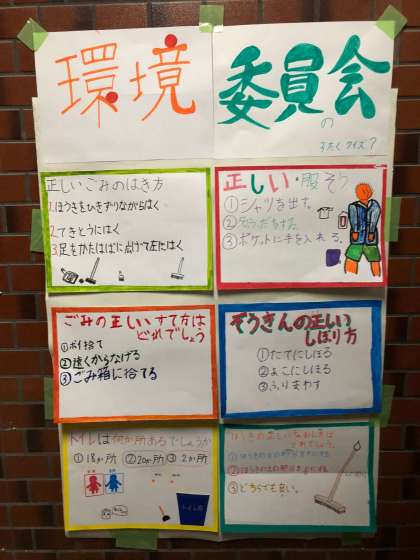 環境
委員会
の
3たくクイズ?
正しいごみのはき方
1.ほうきをひきずりながらはく
2.てきとうにはく
3.足をかたはばに点けて左にはく
正しい服そう
①シャツを出す。
②
③ポケットに手を入れる。
ごみの正しいすて方は
どれでしょう
①ポイ捨て
②遠くからなげる
③ごみ箱に捨てる
ぞうきんの正しい
しぼり方
①たてにしぼる
②よこにしぼる
③ふりまわす
トイレは何か所あるでしょうか
①18か所 ②20か所 ③2か所
ほうきの正しいなおし方は
どれでしょう。
③どちらでも良い。